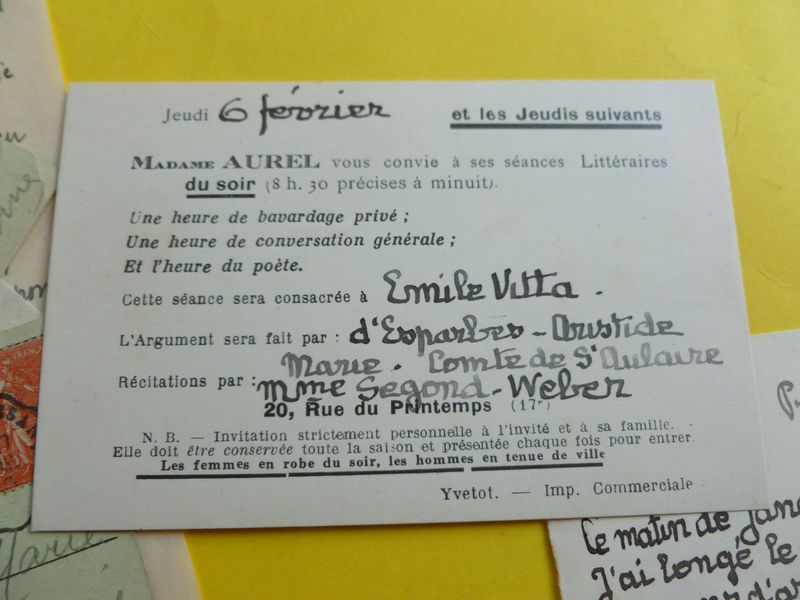 Jeudi 6 février et les Jeudis suivants
MADAME AUREL vous convie à ses séances Littéraires
du soir (8 h. 30 précises à minuit).
Une heure de bavardage privé ;
Une heure de conversation générale ;
Et l'heure du poète.
Cette séance sera consacrée à Emile Vitta .
L'Argument sera fait par : d'Esparbès - Aristide
Marie . Comte de St Aulaire
Récitations par : Mme Segond-Weber
20, Rue du Printemps (17e)
N. B. — Invitation strictement personnelle à l'invité et à sa famille. -
Elle doit être conservée toute la saison et présentée chaque fois pour entrer
Les femmes en robe du soir, les hommes en tenue de ville
Yvetot. — Imp. Commerciale
Marie
Le matin de
J'ai longé le